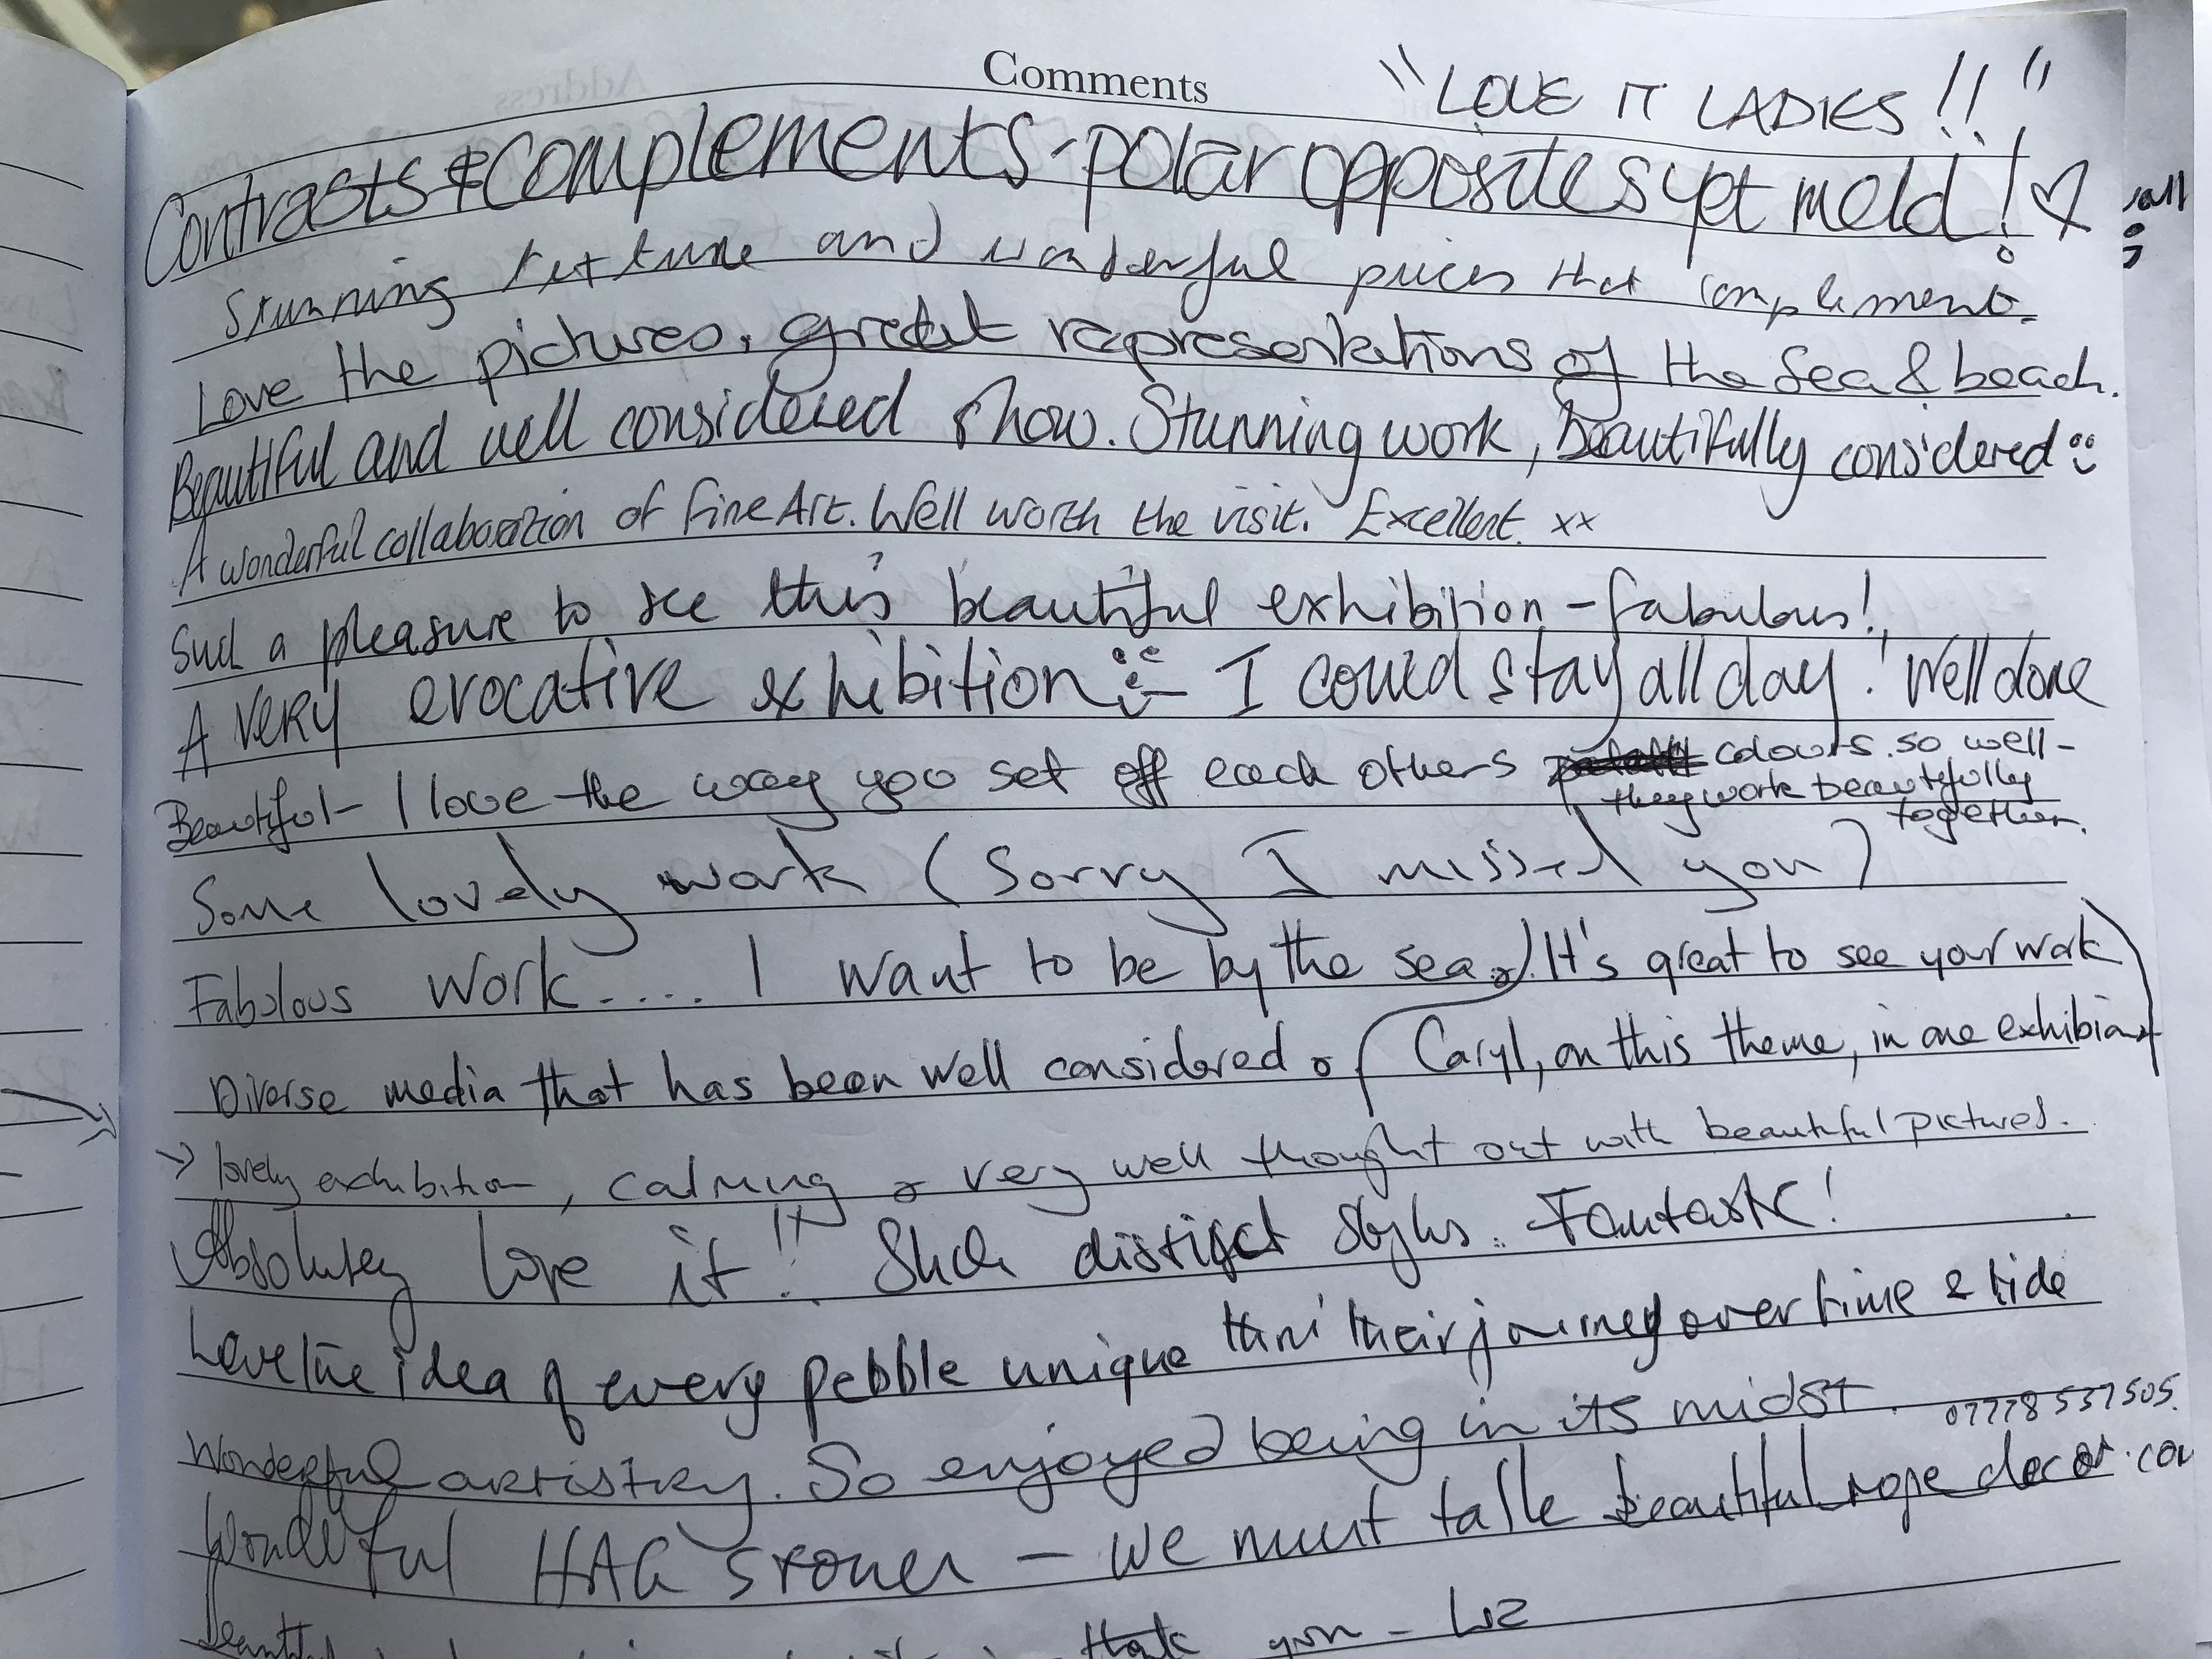 Comments
"LOVE IT LADIES!!"
Contrasts & Complements - polar opposites yet meld! ♡
Stunning texture and wonderful prices that complement.
Love the pictures, great representations of the Sea & beach.
Beautiful and well considered show. Stunning work, beautifully considered
A wonderful collaboration of Fine Art. Well worth the visit. Excellent. xx
Such a pleasure to see this beautiful exhibition - fabulous!
A very evocative exhibition I could stay all day! Well done
Beautiful - I love the way you set off each others colours so well -
they work beautifully
together.
Some lovely work (Sorry I missed you)
Fabulous work..... I want to be by the sea. It's great to see your work
Diverse media that has been well considered. Caryl, on this theme, in one exhibition
→ lovely exhibition, calming & very well thought out with beautiful pictures.
Absolutely love it!! Such distinct styles. Fantastic!
Love the idea of every pebble unique thro' their journey over time & tide
Wonderful artistry. So enjoyed being in its midst. 07778 537505.
Wonderful HAG stones - we must talk beautiful rope decor.com
Beautiful thank you - Liz